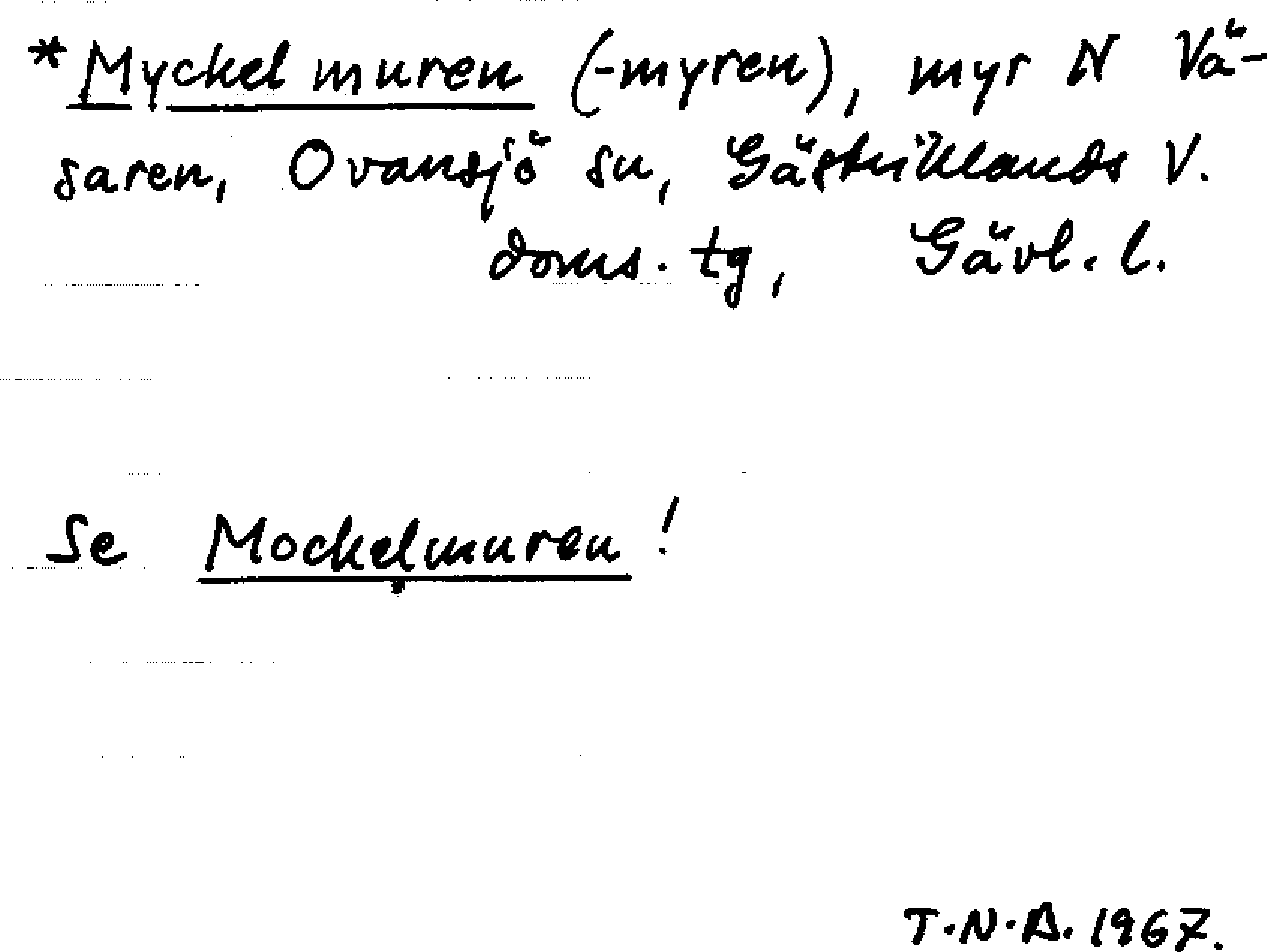 *Myckelmuren (-myren), myr N Vä-
saren, Ovansjö sn, Gästriklands V.
doms. tg, Gävl. l.
Se Mockelmuren!
T.N.A. 1967.